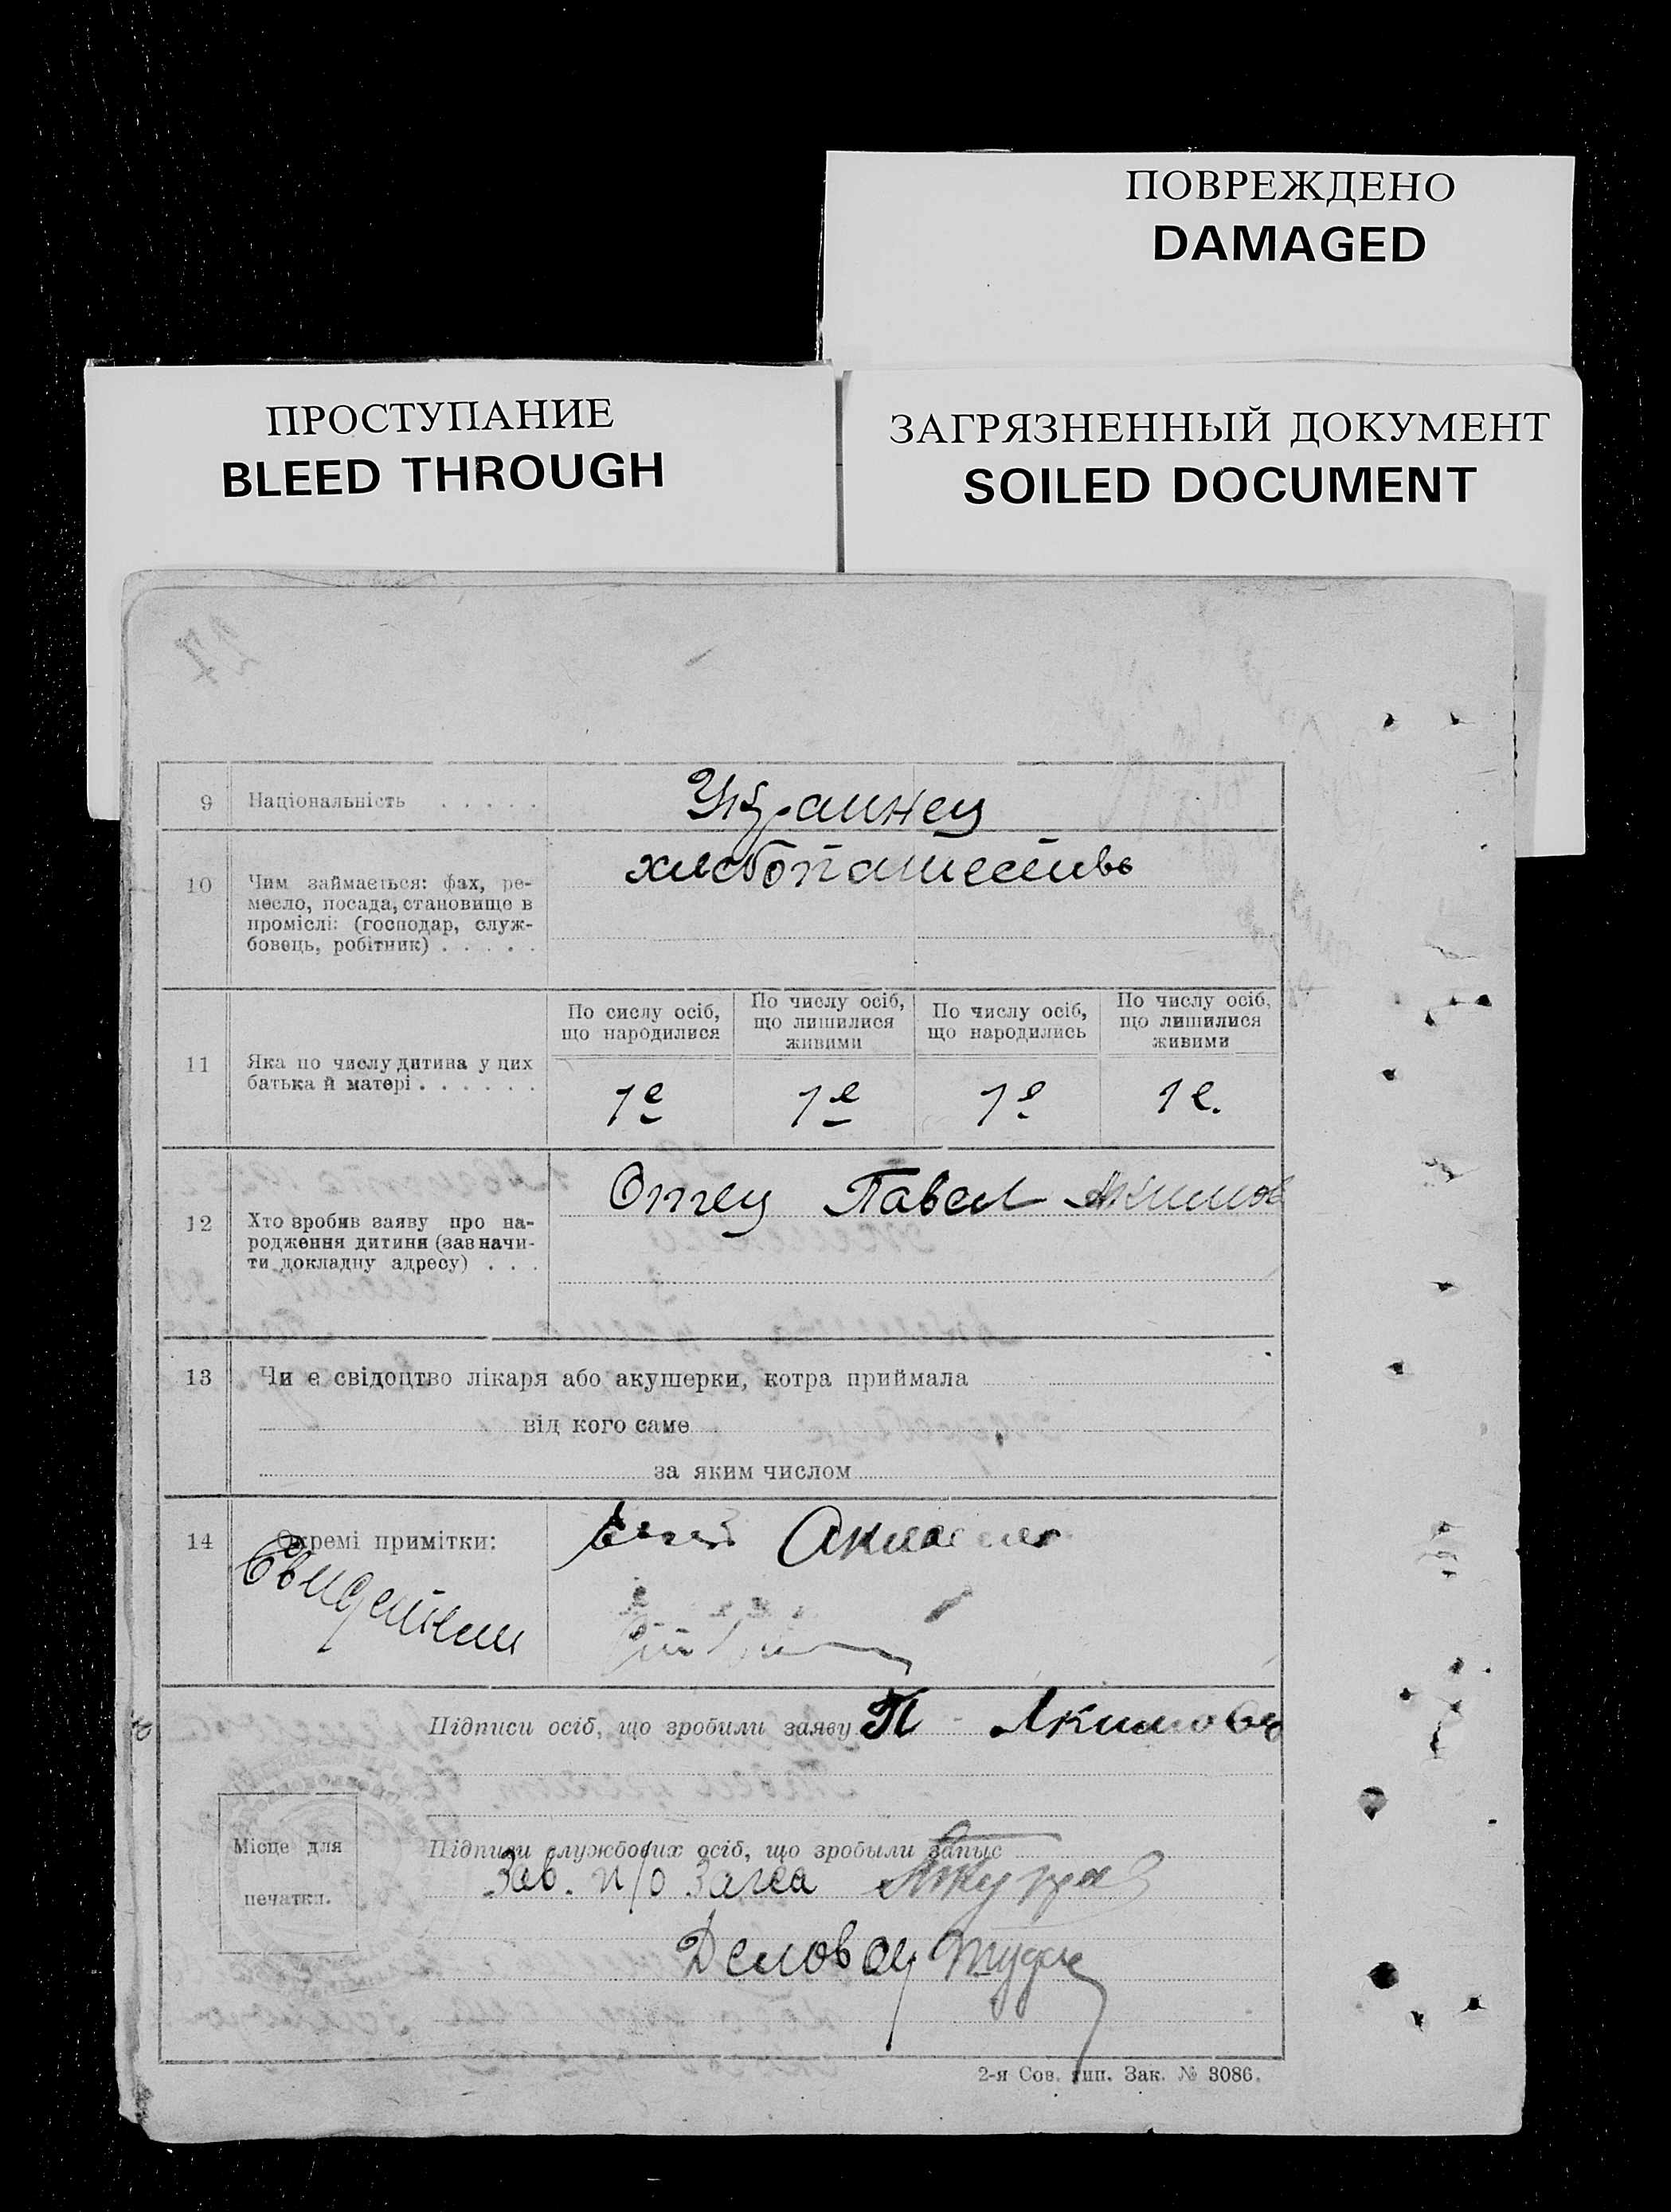 ПОВРЕЖДЕНО
DAMAGED
ПРОСТУПАНИЕ
BLEED THROUGH
ЗАГРЯЗНЕННЫЙ ДОКУМЕНТ
SOILED DOCUMENT
27
9 Національність . . . . . Украинец
10 Чим займається: фах, ре-
месло, посада, становище в
промислі: (господар, служ-
бовець, робітник) . . . . .
хлебопашество
По сислу осіб,
що народилися
По числу осіб,
що лишилися
живими
По числу осіб,
що народились
По числу осіб,
що лишилися
живими
11 Яка по числу дитина у цих
батька й матері . . . . . .
1е 1е 1е 1е.
12 Хто зробив заяву про на-
родження дитини (зазначи-
ти докладну адресу) . . .
Отец Павел Якимов
13 Чи є свідоцтво лікаря або акушерки, котра приймала
від кого саме
за яким числом
14 Окремі примітки:
Свидетели
Підписи осіб, що зробили заяву П Якимов
Місце для
печатки.
Підписи службових осіб, що зробыли запыс
Зав. п/о Загса
Деловод
2-я Сов. тип. Зак. № 3086.